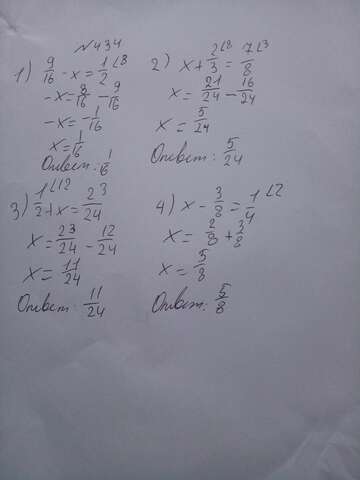 №434
1) 9/16 - x = 1/2 ⌊8
-x = 8/16 - 9/16
-x = -1/16
x = 1/16
Ответ: 1/6
2) x + 2/3 ⌊8 = 7/8 ⌊3
x = 21/24 - 16/24
x = 5/24
Ответ: 5/24
3) 1/2 ⌊12 + x = 23/24
x = 23/24 - 12/24
x = 11/24
Ответ: 11/24
4) x - 3/8 = 1/4 ⌊2
x = 2/8 + 3/8
x = 5/8
Ответ: 5/8